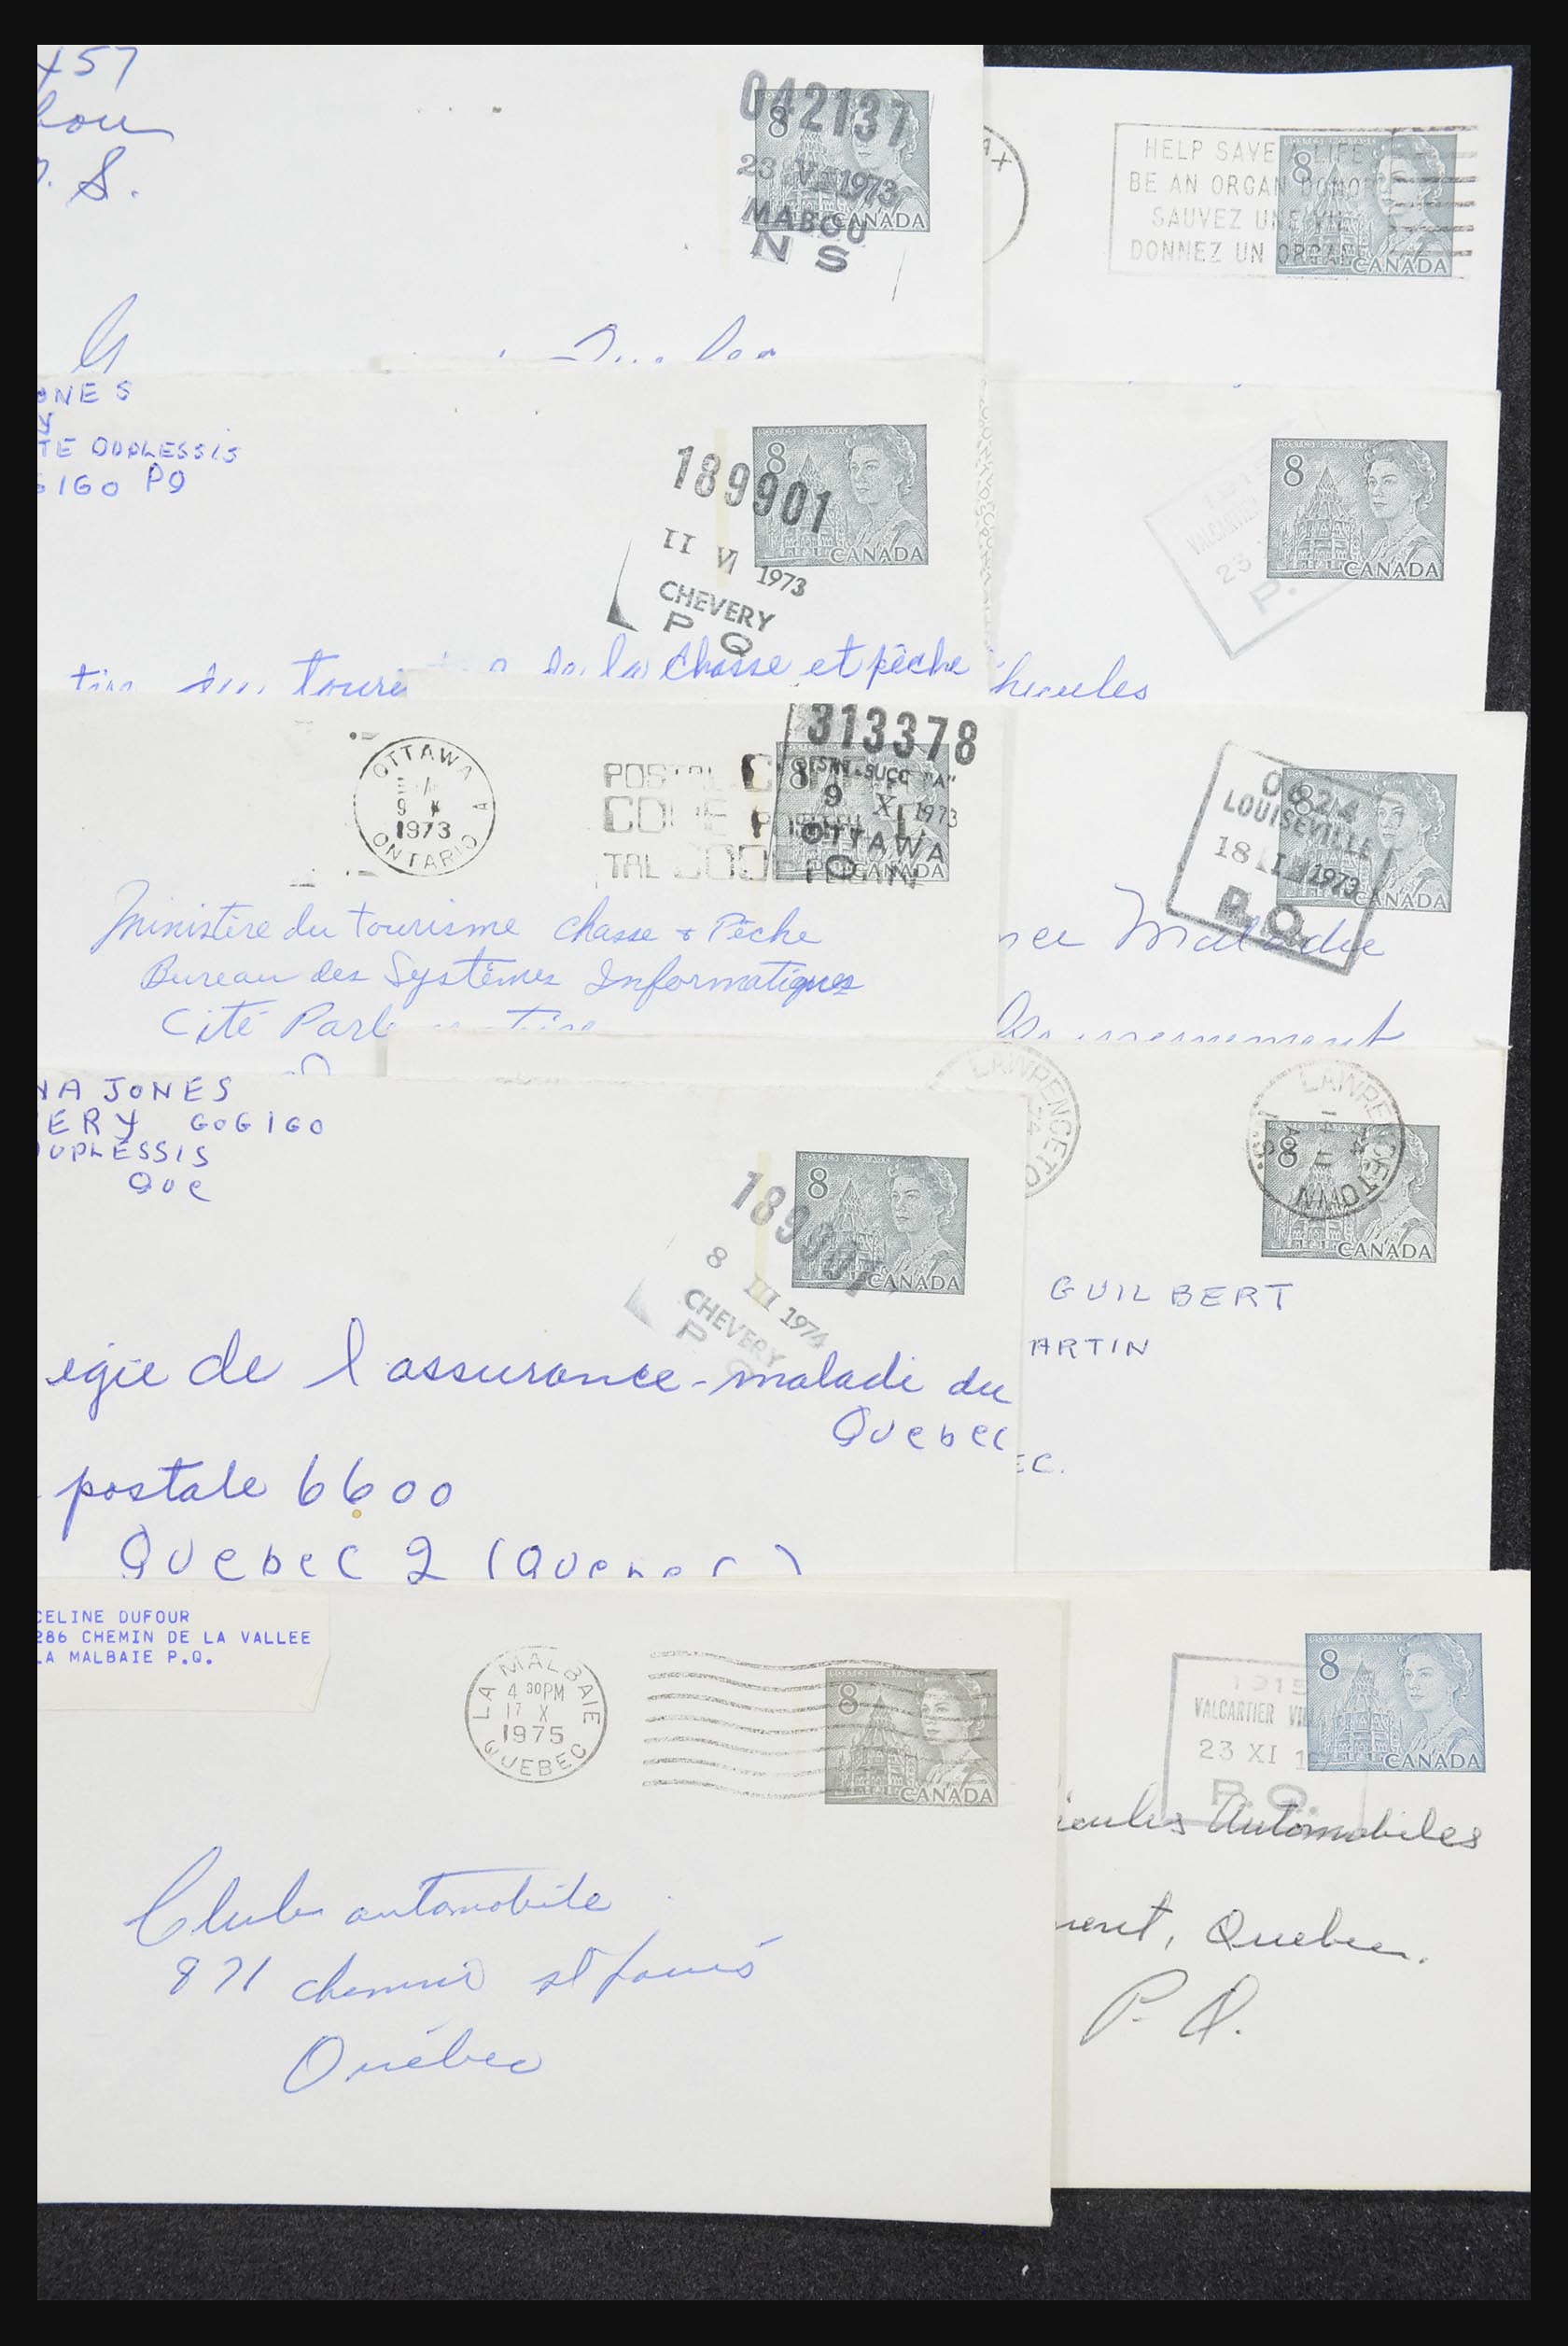 457
bou
N. S.
042137
8
23 V 1973
MABOU
CANADA
N S
AX
HELP SAVE A LIFE
BE AN ORGAN DONOR
SAUVEZ UNE VIE
DONNEZ UN ORGANE
8
CANADA
ONES
Y
TE DUPLESSIS
GIGO PQ
189901
POSTES POSTAGE
8
CANADA
II VI 1973
CHEVERY
P Q
du touris
de la chasse et pêche
1915
VALCARTIER
23
P.
POSTES POSTAGE
8
CANADA
hicules
OTTAWA A
9 X
1973
ONTARIO
POSTAL CODE
POSTAL CODE
313378
DISTN. SUCC "A"
9 XI 1973
OTTAWA
O
8
CANADA
Ministère du tourisme chasse & Pêche
Bureau des Systèmes Informatiques
Cité Parl
LOUISEVILLE
18 I 1973
P.Q.
8
CANADA
nce Maladie
NA JONES
ERY GOGIGO
DUPLESSIS
QUE
POSTES POSTAGE
8
CANADA
189901
8 III 1974
CHEVERY
P Q
egie de l'assurance-maladi du
Quebec
postale 6600
Quebec 2 (Quebec)
LAWRENCETO
LAWRENCETOWN
8
CANADA
GUILBERT
ARTIN
EC.
CELINE DUFOUR
286 CHEMIN DE LA VALLEE
LA MALBAIE P.Q.
LA MALBAIE
4 30PM
17 X
1975
QUEBEC
8
CANADA
Club automobile
871 chemin st Louis
Québec
1915
VALCARTIER VIL
23 XI 1
P.Q.
POSTES POSTAGE
8
CANADA
icules Automobiles
ment, Quebec.
P. Q.